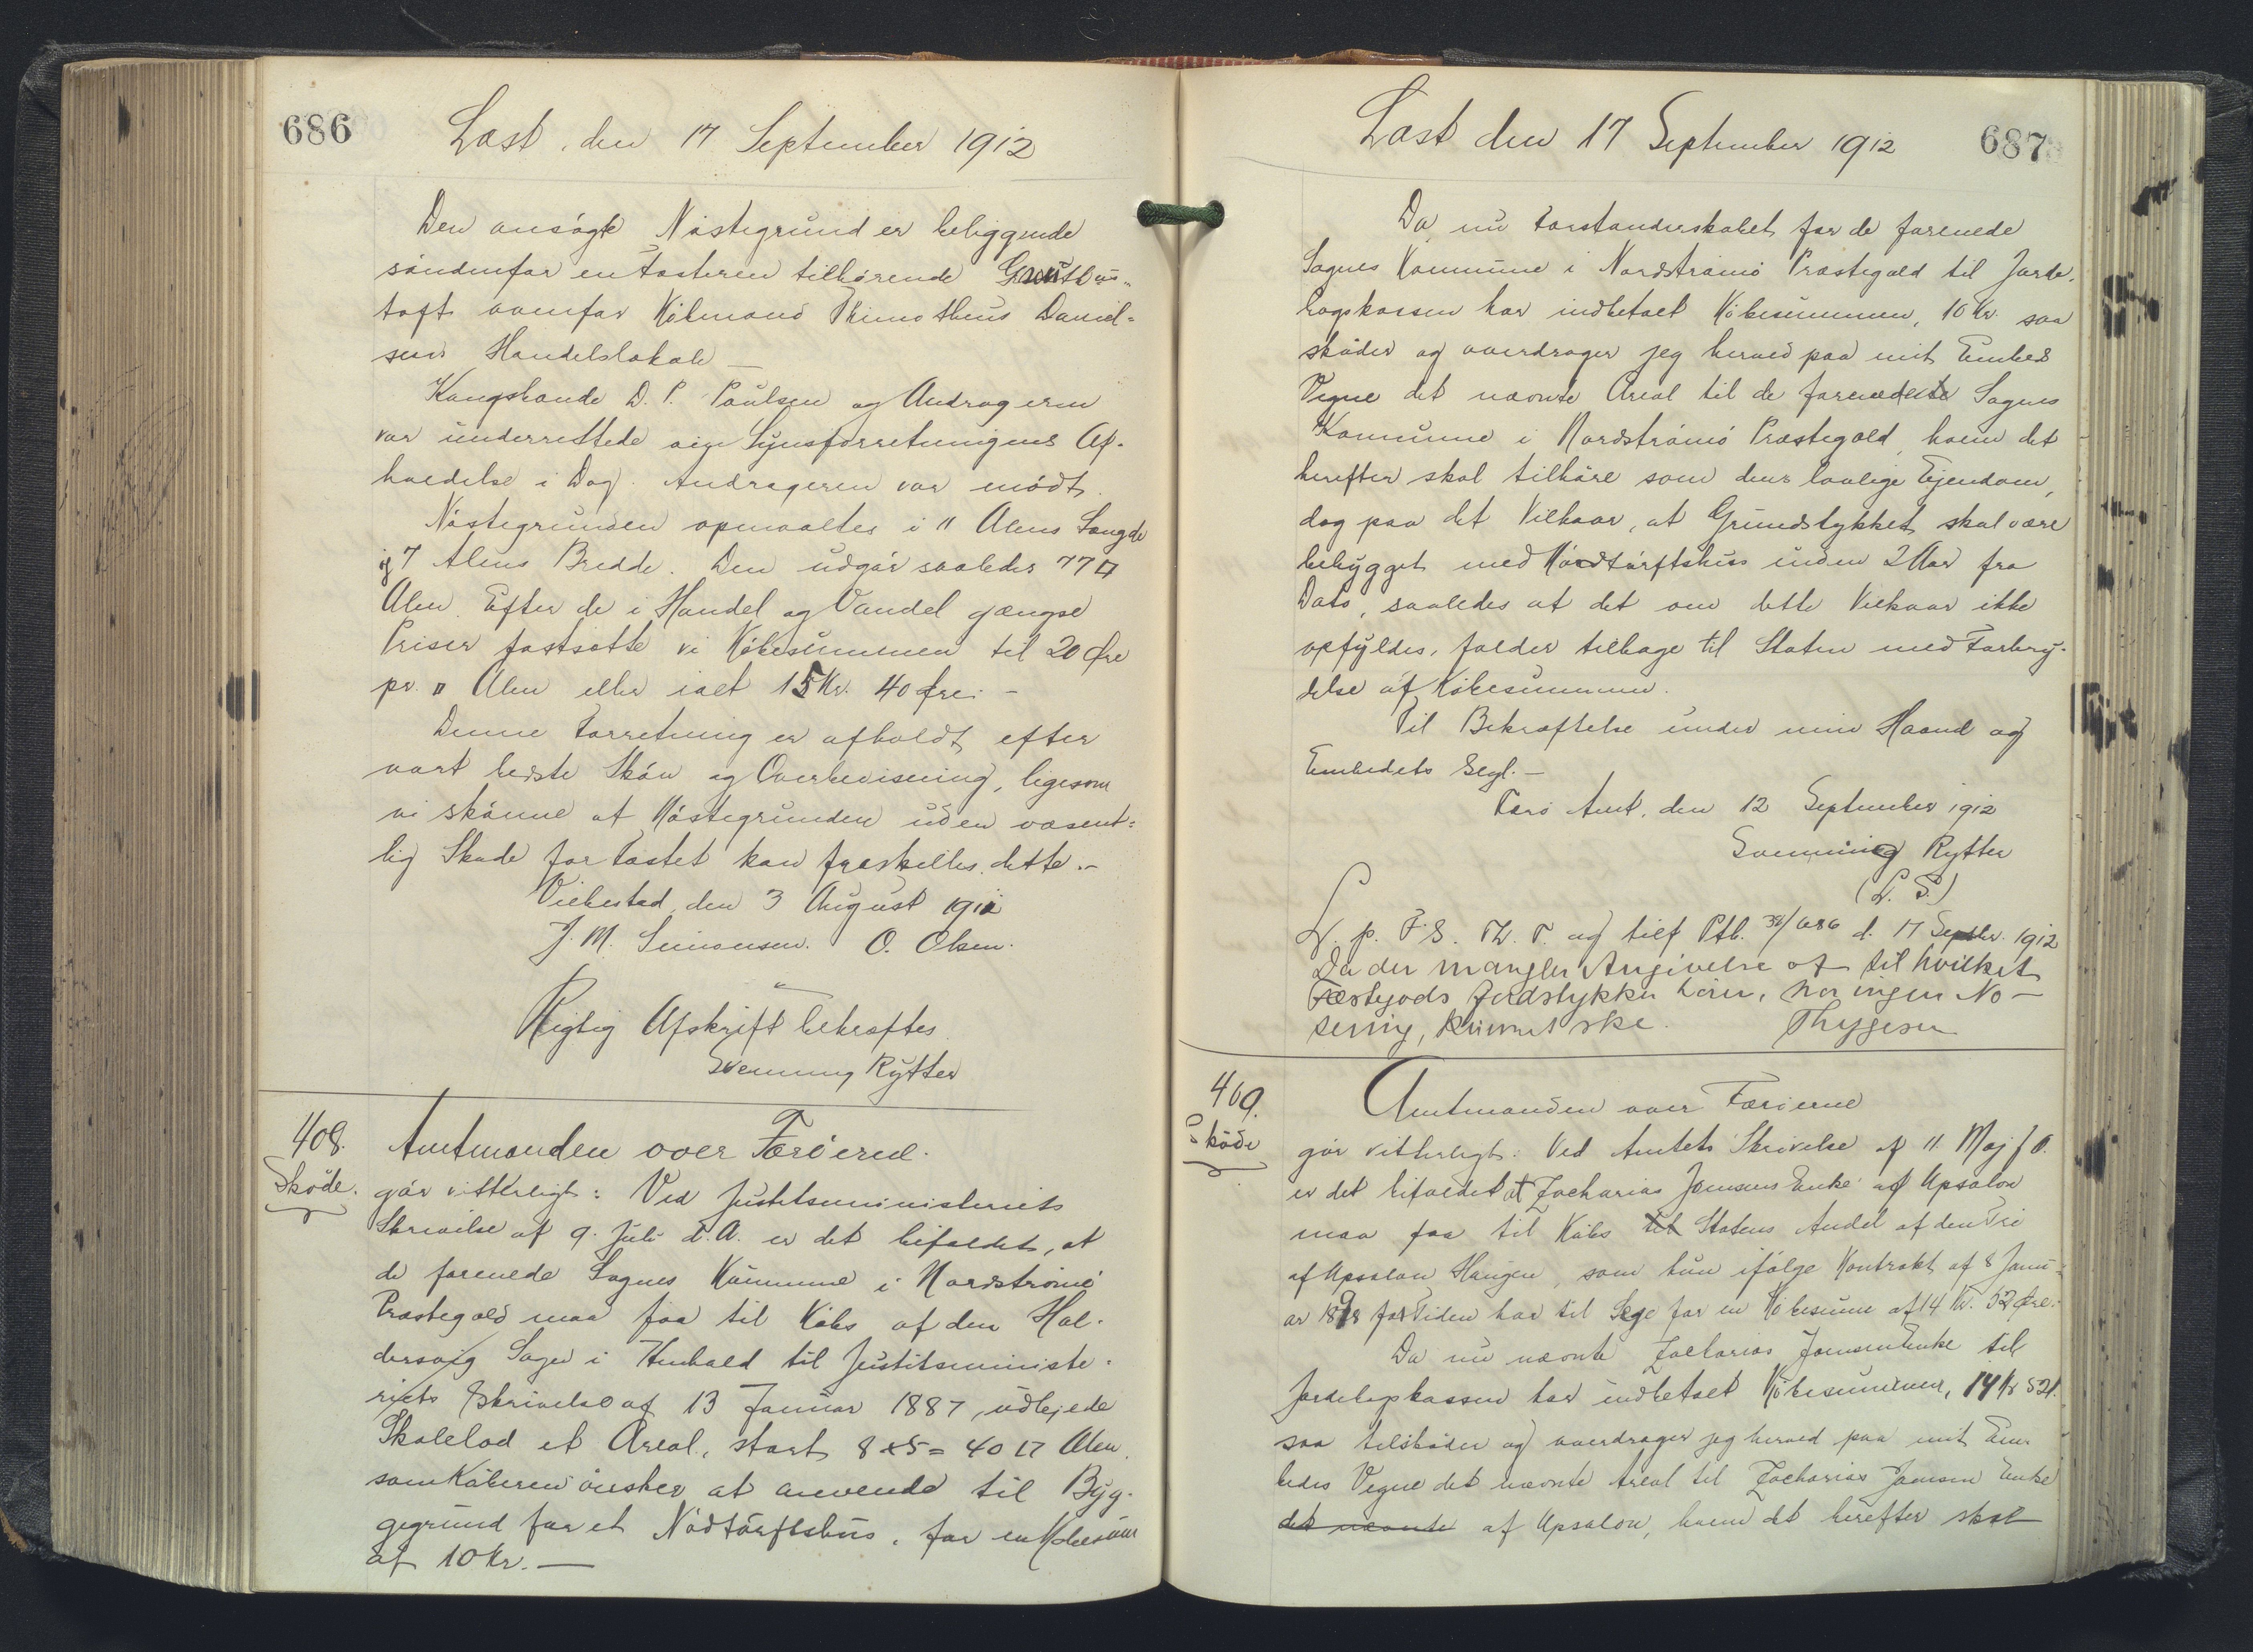 686
Læst, den 17 September 1912
Den ansøgte Nøstegrund er beliggende
søndenfor en Fæsteren tilhørende
toft ovenfor Købmand Thimotheus Daniel=
sens Handelslokale —
Kongsbonde D. P. Poulsen og Andrageren
var underrettede om Synsforretningens Af-
holdelse i Dag. Andrageren var mødt.
Nøstegrunden opmaaltes i 11 Alens Længde
og 7 Alens Bredde. Den udgør saaledes 77 □
Alen. Efter de i Handel og Vandel gængse
Priser fastsatte vi Købesummen til 20 Øre
pr. □ Alen eller ialt 15 Kr. 40 Øre. —
Denne Forretning er afholdt efter
vort bedste Skøn og Overbevisning, ligesom
vi skønne at Nøstegrunden uden væsent=
lig Skade for Fæstet kan fraskilles dette. —
den 3 August 1912
J. M. Simonsen. O. Olsen.
Rigtig Afskrift bekræftes.
Svenning Rytter
408.
Skøde.
Amtmanden over Færøerne.
gør vitterligt: Ved Justitsministeriets
Skrivelse af 9. Juli d. A. er det bifaldet, at
de forenede Sognes Kommune i Nordstrømø
Præstegæld maa faa til Købs af den Hal-
dersvig Sogn i Henhold til Justitsministe-
riets Skrivelse af 13 Januar 1887, udlejede
Skolelod et Areal, stort 8 x 5 = 40 □ Alen,
som Køberen ønsker at anvende til Byg-
gegrund for et Nødtørftshus, for en Købesum
af 10 Kr. —
Læst den 17 September 1912
687
Da nu Forstanderskabet for de forenede
Sognes Kommune i Nordstrømø Præstegæld til Jorde-
bogskassen har indbetalt Købesummen, 10 Kr. saa
skøder og overdrager jeg herved paa mit Embeds
Vegne det nævnte Areal til de forenede Sognes
Kommune i Nordstrømø Præstegæld, hvem det
herefter skal tilhøre som dens lovlige Ejendom,
dog paa det Vilkaar, at Grundstykket skal være
bebygget med Nødtørftshus inden 2 Aar fra
Dato, saaledes at det om dette Vilkaar ikke
opfyldes, falder tilbage til Staten med Forbry-
delse af Købesummen.
Til Bekræftelse under min Haand og
Embedets Segl. —
Færø Amt, den 12 September 1912
Svenning Rytter
(L. S.)
L. p. F. S. Th. T. og tilf Ptb. /686 d. 17 Septbr. 1912
Da der mangler Angivelse af til hvilket
Fæstegods Jordstykket hører, har ingen No-
tering kunnet ske. Thygesen
409.
Skøde
Amtmanden over Færøerne
gør vitterligt: Ved Amtets Skrivelse af 11 Maj f. A.
er det bifaldet at Zacharias Joensens Enke af Upsalon
maa faa til Købs til Statens Andel af den Tri
af Upsalon Haugen, som hun ifølge Kontrakt af 8 Janu-
ar 1898 for Tiden har til Leje for en Købesum af 14 Kr. 52 Øre.
Da nu nævnte Zacharias Joensens Enke til
Jordebogskassen har indbetalt Købesummen, 14 Kr 52 Ø.
saa tilskøder og overdrager jeg herved paa mit Em-
bedes Vegne det nævnte Areal til Zacharias Joensens Enke
det nævnte af Upsalon, hvem det herefter skal